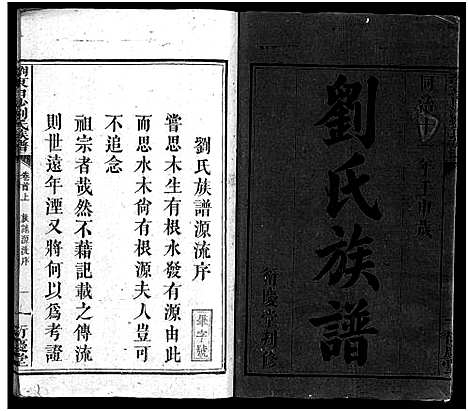 劉氏族譜
衍慶堂刊修
劉氏族譜源流序
嘗思木生有根水發有源由此
而思水木尙有根源夫人豈可
不追念
祖宗者哉然不藉記載之傳流
則世遠年湮又將何以爲考證
劉氏族譜
卷首上
族譜源流序
一
衍慶堂